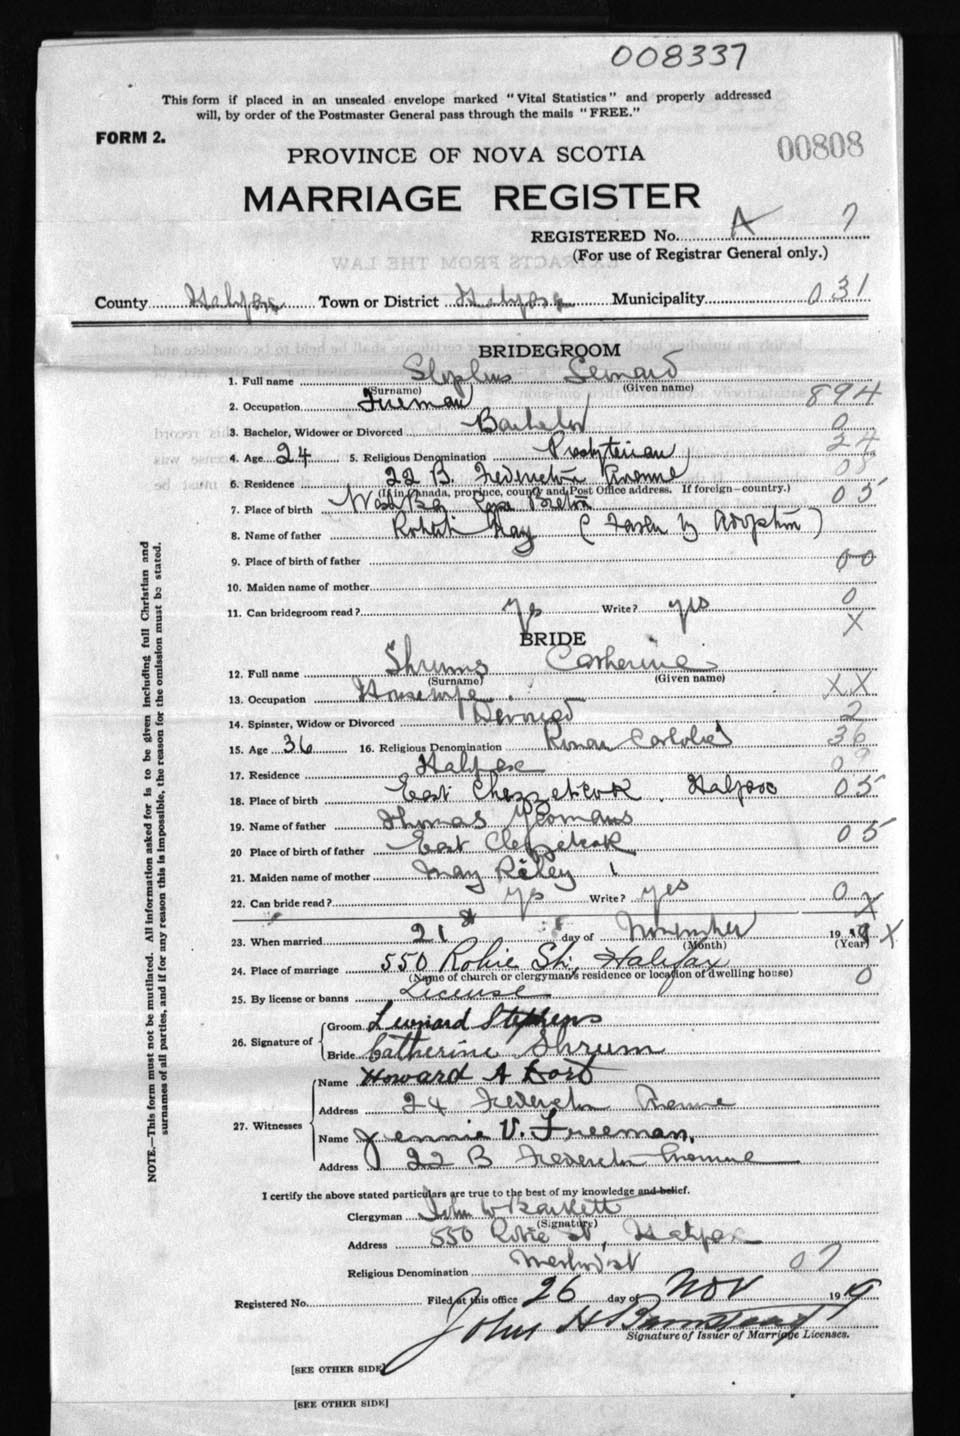 008337
This form if placed in an unsealed envelope marked "Vital Statistics" and properly addressed
will, by order of the Postmaster General pass through the mails "FREE."
FORM 2.
00808
PROVINCE OF NOVA SCOTIA
MARRIAGE REGISTER
REGISTERED No. A 7
(For use of Registrar General only.)
County Halifax Town or District Halifax Municipality 031
BRIDEGROOM
1. Full name Stephens Leonard
(Surname) (Given name)
2. Occupation Fireman 894
3. Bachelor, Widower or Divorced Bachelor 0
4. Age 24 5. Religious Denomination Presbyterian 24
6. Residence 22 B. Frederickton Avenue 05
(If in Canada, province, county and Post Office address. If foreign—country.)
7. Place of birth Cape Breton 05
8. Name of father Hay (Father by Adoption)
9. Place of birth of father 00
10. Maiden name of mother 0
11. Can bridegroom read? yes Write? yes X
BRIDE
12. Full name Shrums Catherine
(Surname) (Given name)
13. Occupation Housewife XX
14. Spinster, Widow or Divorced Divorced 2
15. Age 36 16. Religious Denomination Roman Catholic 36
17. Residence Halifax 09
18. Place of birth East Chezzetcook, Halifax 05
19. Name of father Thomas Yeomans
20 Place of birth of father East Chezzetcook 05
21. Maiden name of mother May Riley
22. Can bride read? yes Write? yes 0 X
23. When married 21st day of November 19 19 X
(Month) (Year)
24. Place of marriage 550 Robie St., Halifax 0
(Name of church or clergyman's residence or location of dwelling house)
25. By license or banns License
26. Signature of Groom Leonard Stephens
Bride Catherine Shrum
27. Witnesses
Name Howard A Dort
Address 24 Frederickton Avenue
Name Jennie V. Freeman,
Address 22 B Frederickton Avenue
I certify the above stated particulars are true to the best of my knowledge and belief.
Clergyman John W Bartlett
(Signature)
Address 550 Robie St, Halifax
Religious Denomination Methodist 07
Registered No. Filed at this office 26 day of Nov 19 19
John H Barnstead
Signature of Issuer of Marriage Licenses.
[SEE OTHER SIDE]
[SEE OTHER SIDE]
NOTE.—This form must not be mutilated. All information asked for is to be given including full Christian and
surnames of all parties, and if for any reason this is impossible, the reason for the omission must be stated.